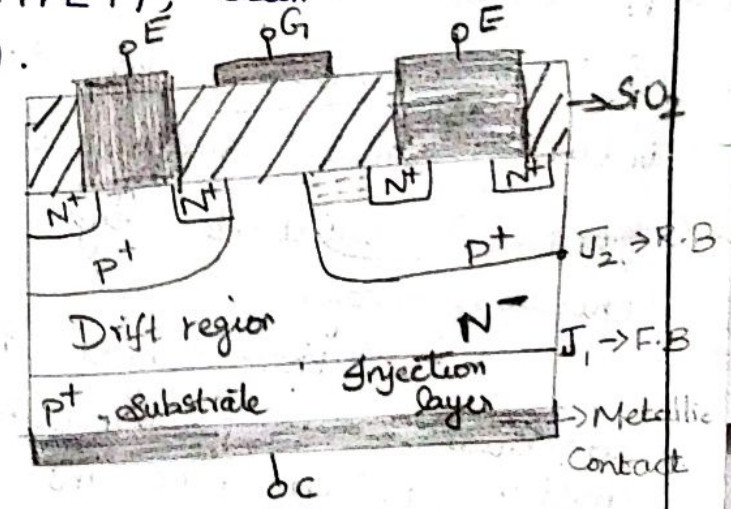 E G E
SiO2
N+ N+ N+ N+
P+ P+ J2 → F.B
Drift region N-
J1 → F.B
P+ substrate Injection layer
→ Metallic Contact
C